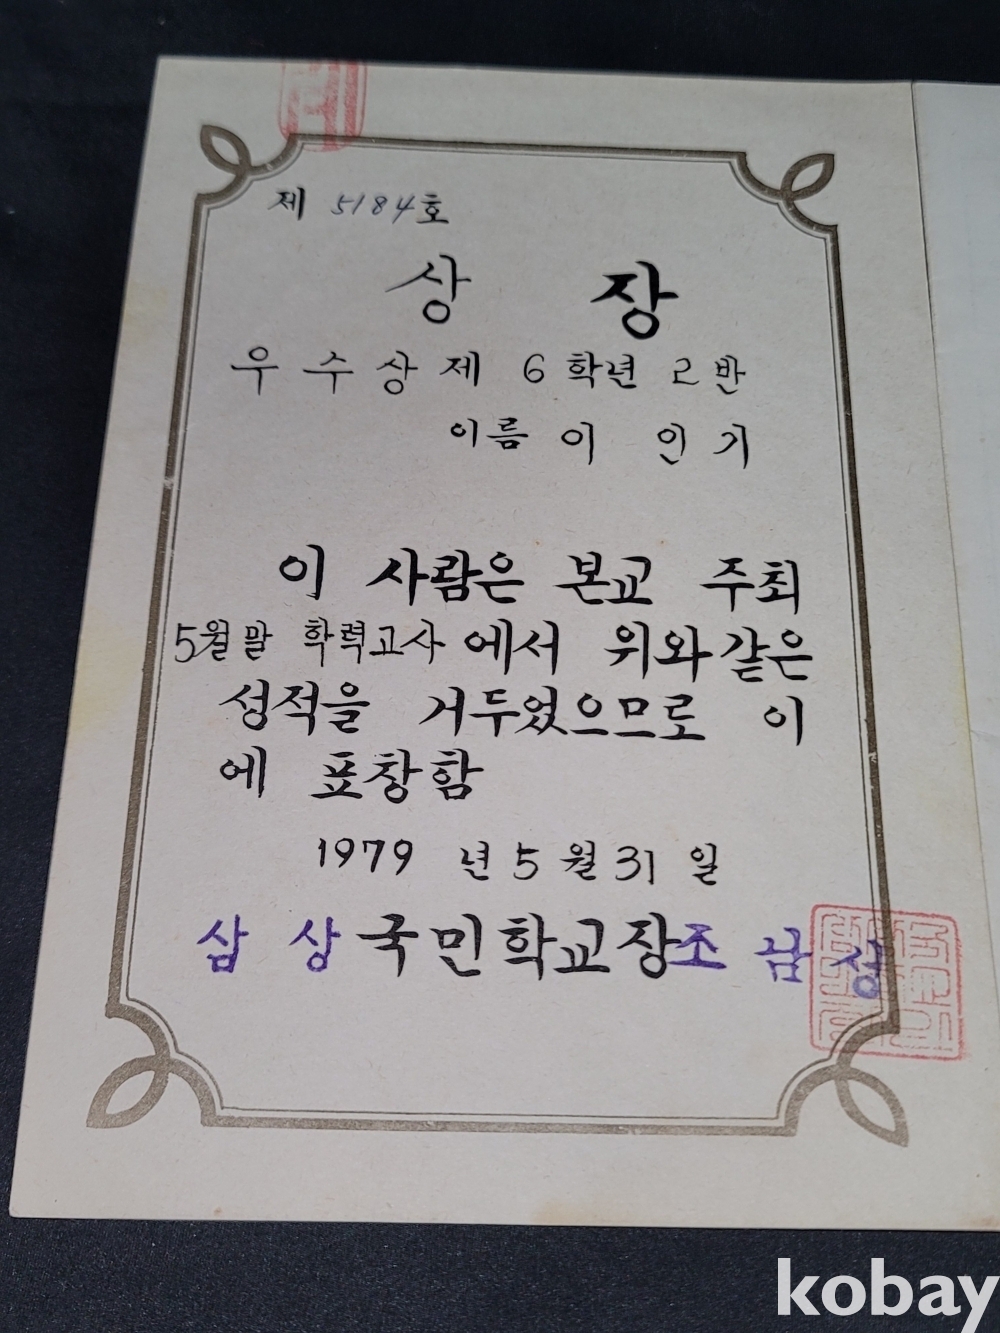 제 5184호
상 장
우수상 제 6학년 2반
이름 이 인 기
이 사람은 본교 주최
5월말 학력고사 에서 위와같은
성적을 거두었으므로 이
에 표창함
1979 년 5 월 31 일
삼 상 국민학교장 조 남 성
kobay